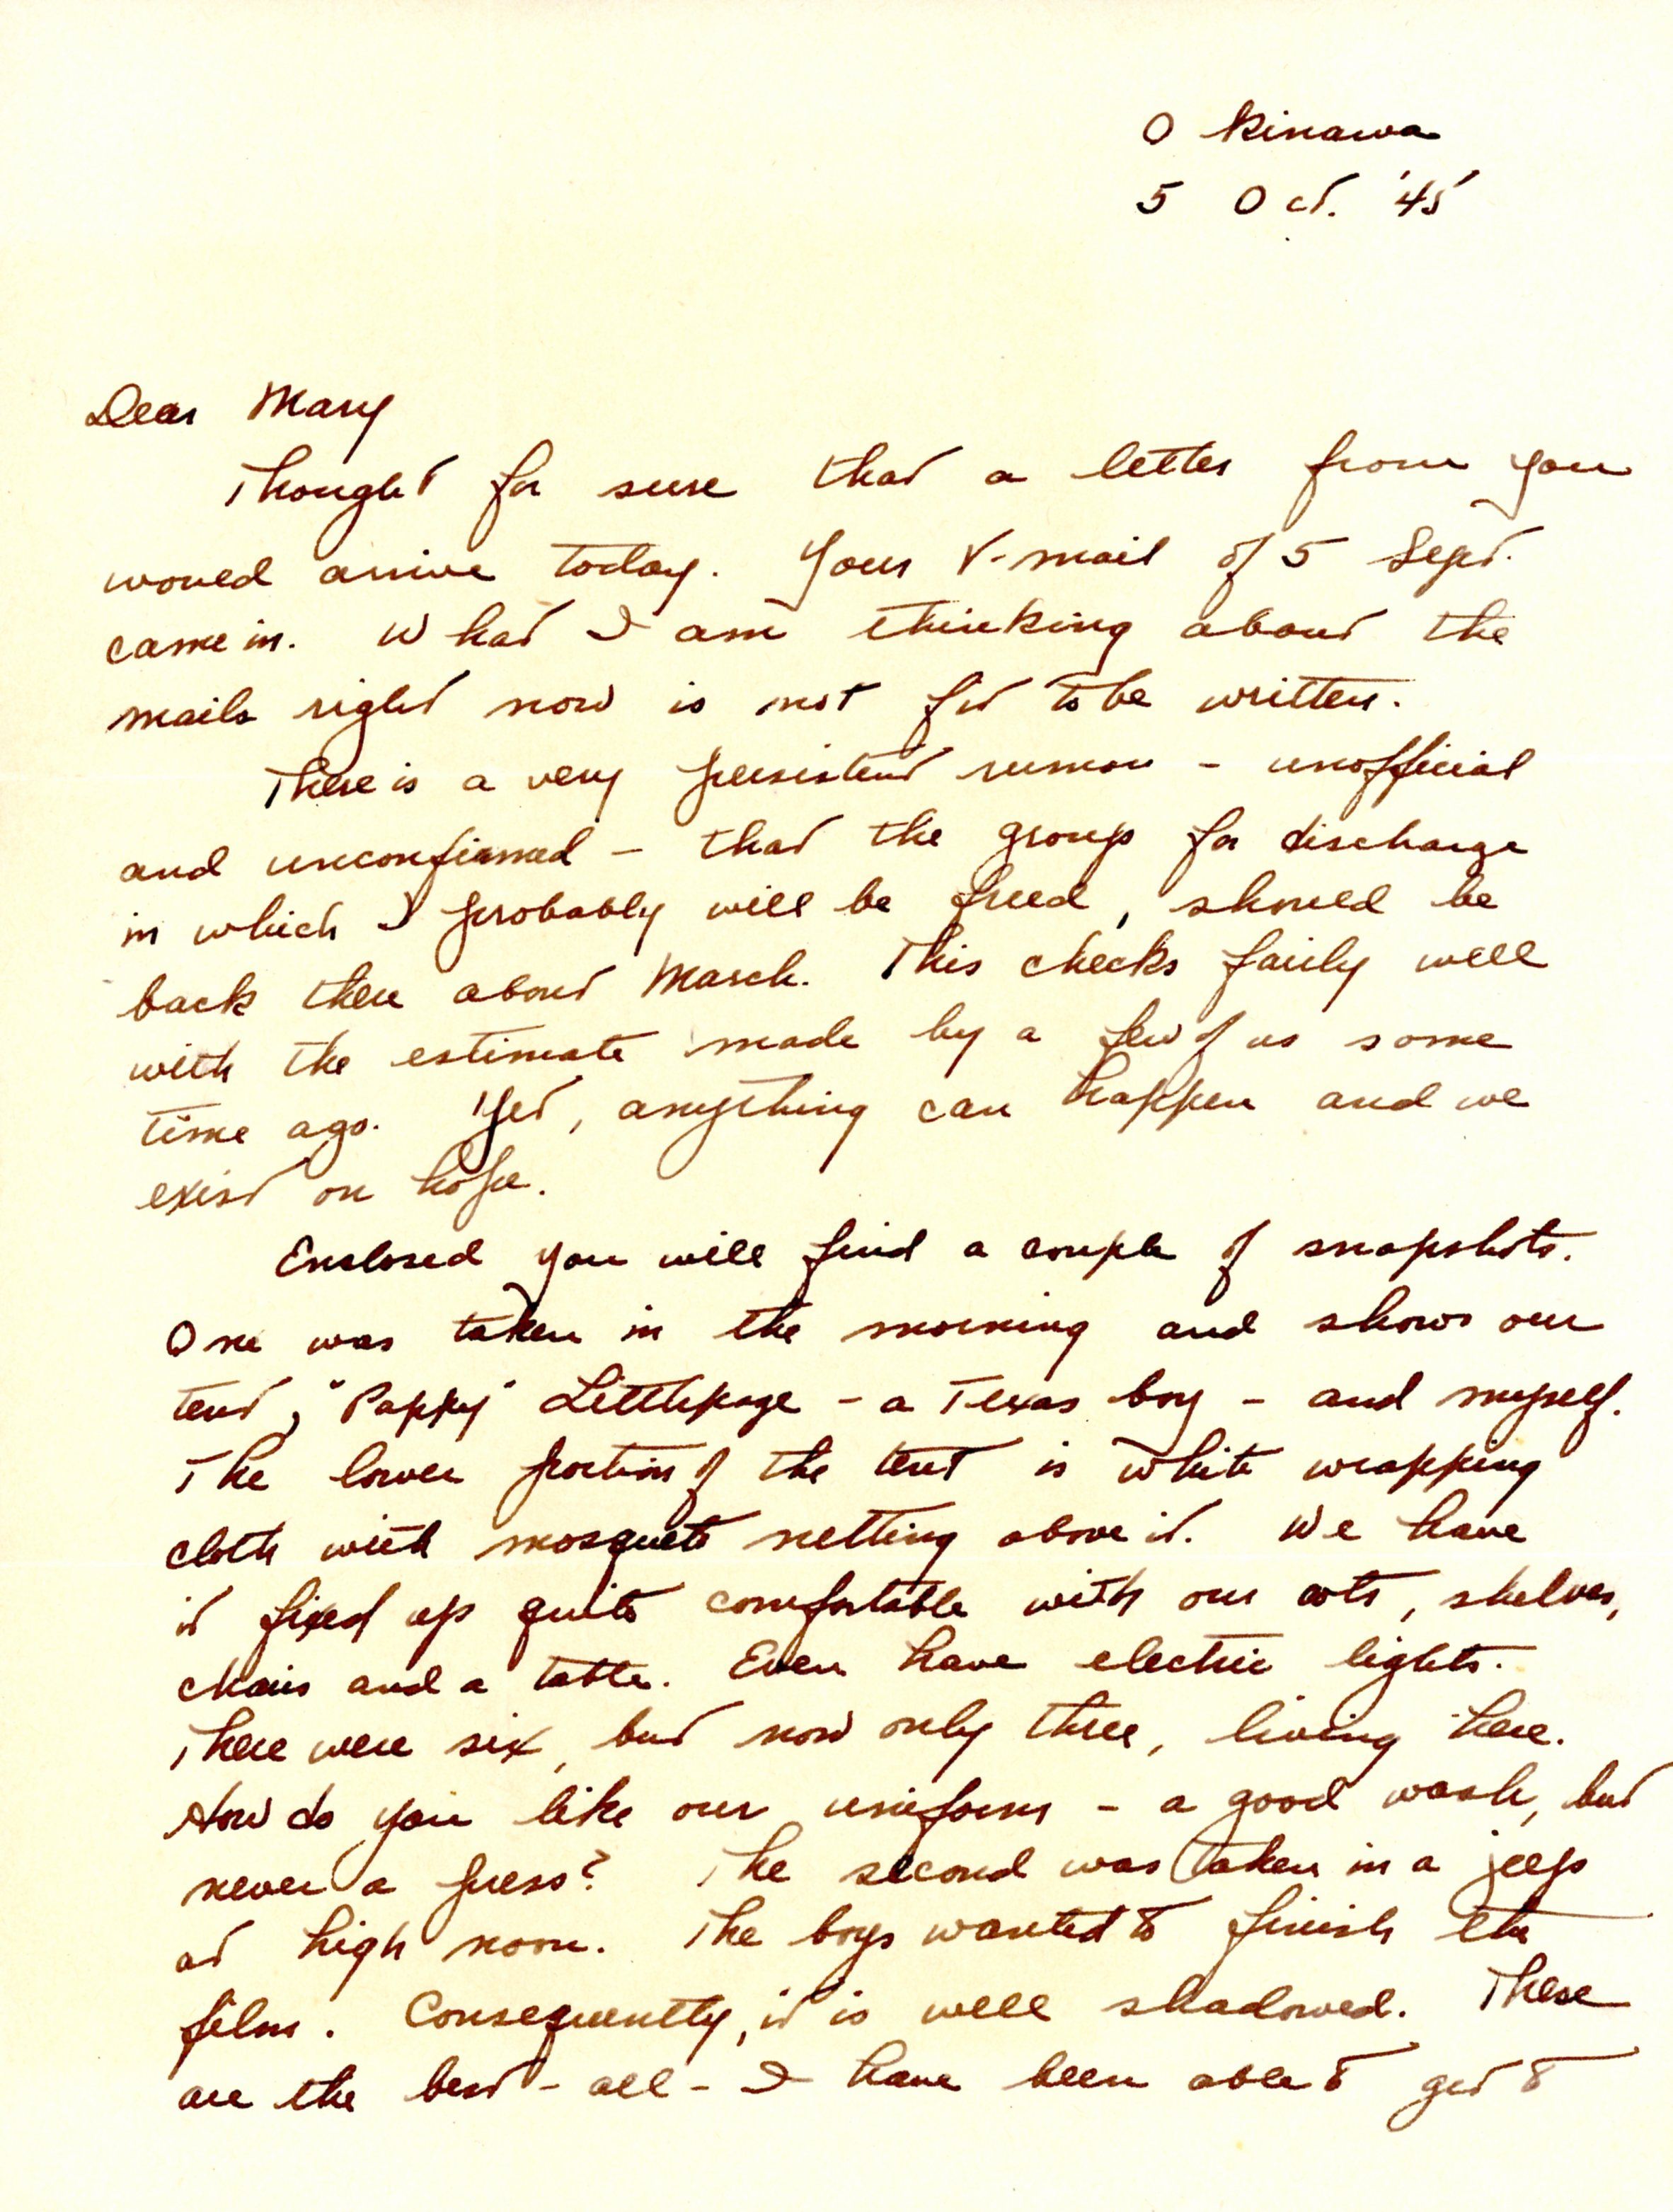 Okinawa
5 Oct. '45
Dear Mary
Thought for sure that a letter from you
would arrive today. Your V-mail of 5 Sept.
came in. What I am thinking about the
mails right now is not fit to be written.
There is a very persistent rumor - unofficial
and unconfirmed - that the group for discharge
in which I probably will be freed, should be
back there about March. This checks fairly well
with the estimate made by a few of us some
time ago. Yet, anything can happen and we
exist on hope.
Enclosed you will find a couple of snapshots.
One was taken in the morning and shows our
tent, "Pappy" Littlepage - a Texas boy - and myself.
The lower portion of the tent is white wrapping
cloth with mosquito netting above it. We have
it fixed up quite comfortable with our cots, shelves,
chairs and a table. Even have electric lights.
There were six, but now only three, living here.
How do you like our uniforms - a good wash, but
never a press? The second was taken in a jeep
at high noon. The boys wanted to finish the
film. Consequently, it is well shadowed. These
are the best - all - I have been able to get to